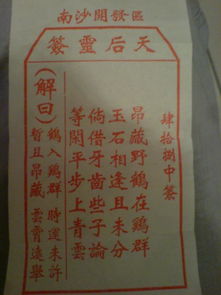 南沙開發區
天后靈簽
肆拾捌中簽
昂藏野鶴在鷄群
玉石相逢且未分
倘借牙齒些子論
等閑平步上青雲
(解曰)
鶴入鷄群 時運未許
暫且昂藏 雲霄遠舉